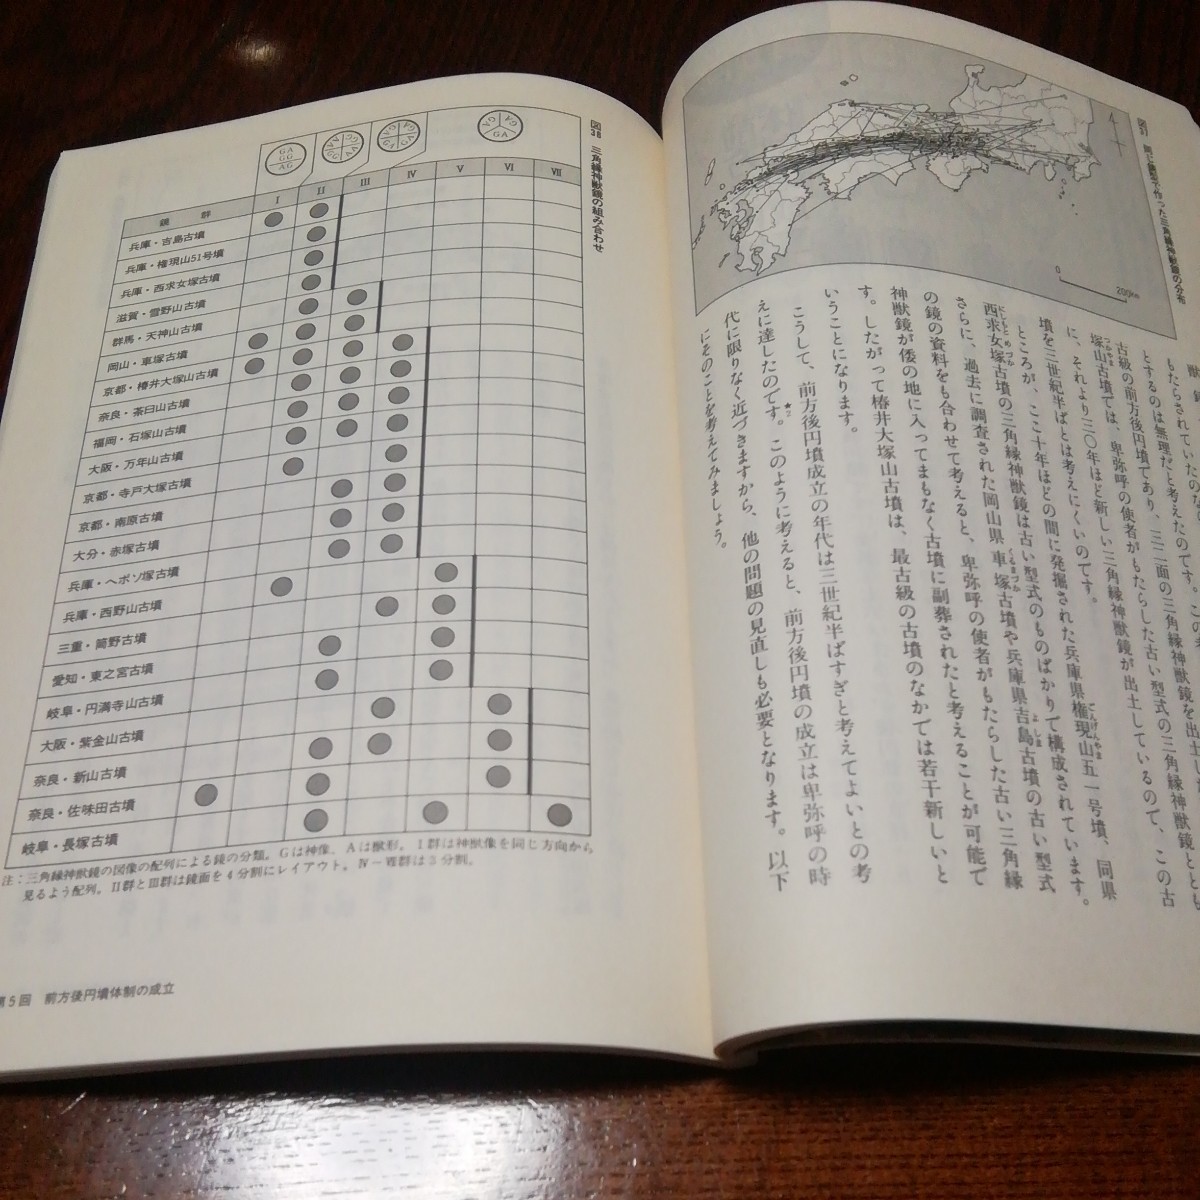 図37 同じ鋳型で作った三角縁神獣鏡の分布
0
200km
もたらされていたのな
とするのは無理だと考えたのです。この考
古級の前方後円墳であり、三二面の三角縁神獣鏡を出土した
塚山古墳では、卑弥呼の使者がもたらした古い型式の三角縁神獣鏡ととも
に、それより三〇年ほど新しい三角縁神獣鏡が出土しているので、この古
墳を三世紀半ばとは考えにくいのです。
ところが、ここ十年ほどの間に発掘された兵庫県権現山五一号墳、同県
西求女塚古墳の三角縁神獣鏡は古い型式のものばかりで構成されています。
さらに、過去に調査された岡山県車塚古墳や兵庫県吉島古墳の古い型式
の鏡の資料をも合わせて考えると、卑弥呼の使者がもたらした古い三角縁
神獣鏡が倭の地に入ってまもなく古墳に副葬されたと考えることが可能で
す。したがって椿井大塚山古墳は、最古級の古墳のなかでは若干新しいと
いうことになります。
こうして、前方後円墳成立の年代は三世紀半ばすぎと考えてよいとの考
えに達したのです。このように考えると、前方後円墳の成立は卑弥呼の時
代に限りなく近づきますから、他の問題の見直しも必要となります。以下
にそのことを考えてみましょう。
図38 三角縁神獣鏡の組み合わせ
GA
GG
AG
GA
鏡 群 I II III IV V VI VII
兵庫・吉島古墳
兵庫・権現山51号墳
兵庫・西求女塚古墳
滋賀・雪野山古墳
群馬・天神山古墳
岡山・車塚古墳
京都・椿井大塚山古墳
奈良・茶臼山古墳
福岡・石塚山古墳
大阪・万年山古墳
京都・寺戸大塚古墳
京都・南原古墳
大分・赤塚古墳
兵庫・ヘボソ塚古墳
兵庫・西野山古墳
三重・筒野古墳
愛知・東之宮古墳
岐阜・円満寺山古墳
大阪・紫金山古墳
奈良・新山古墳
奈良・佐味田古墳
岐阜・長塚古墳
注：三角縁神獣鏡の図像の配列による鏡の分類。Gは神像、Aは獣形。I群は神獣像を同じ方向から
見るよう配列。II群とIII群は鏡面を4分割にレイアウト。IV－VII群は3分割。
第5回 前方後円墳体制の成立